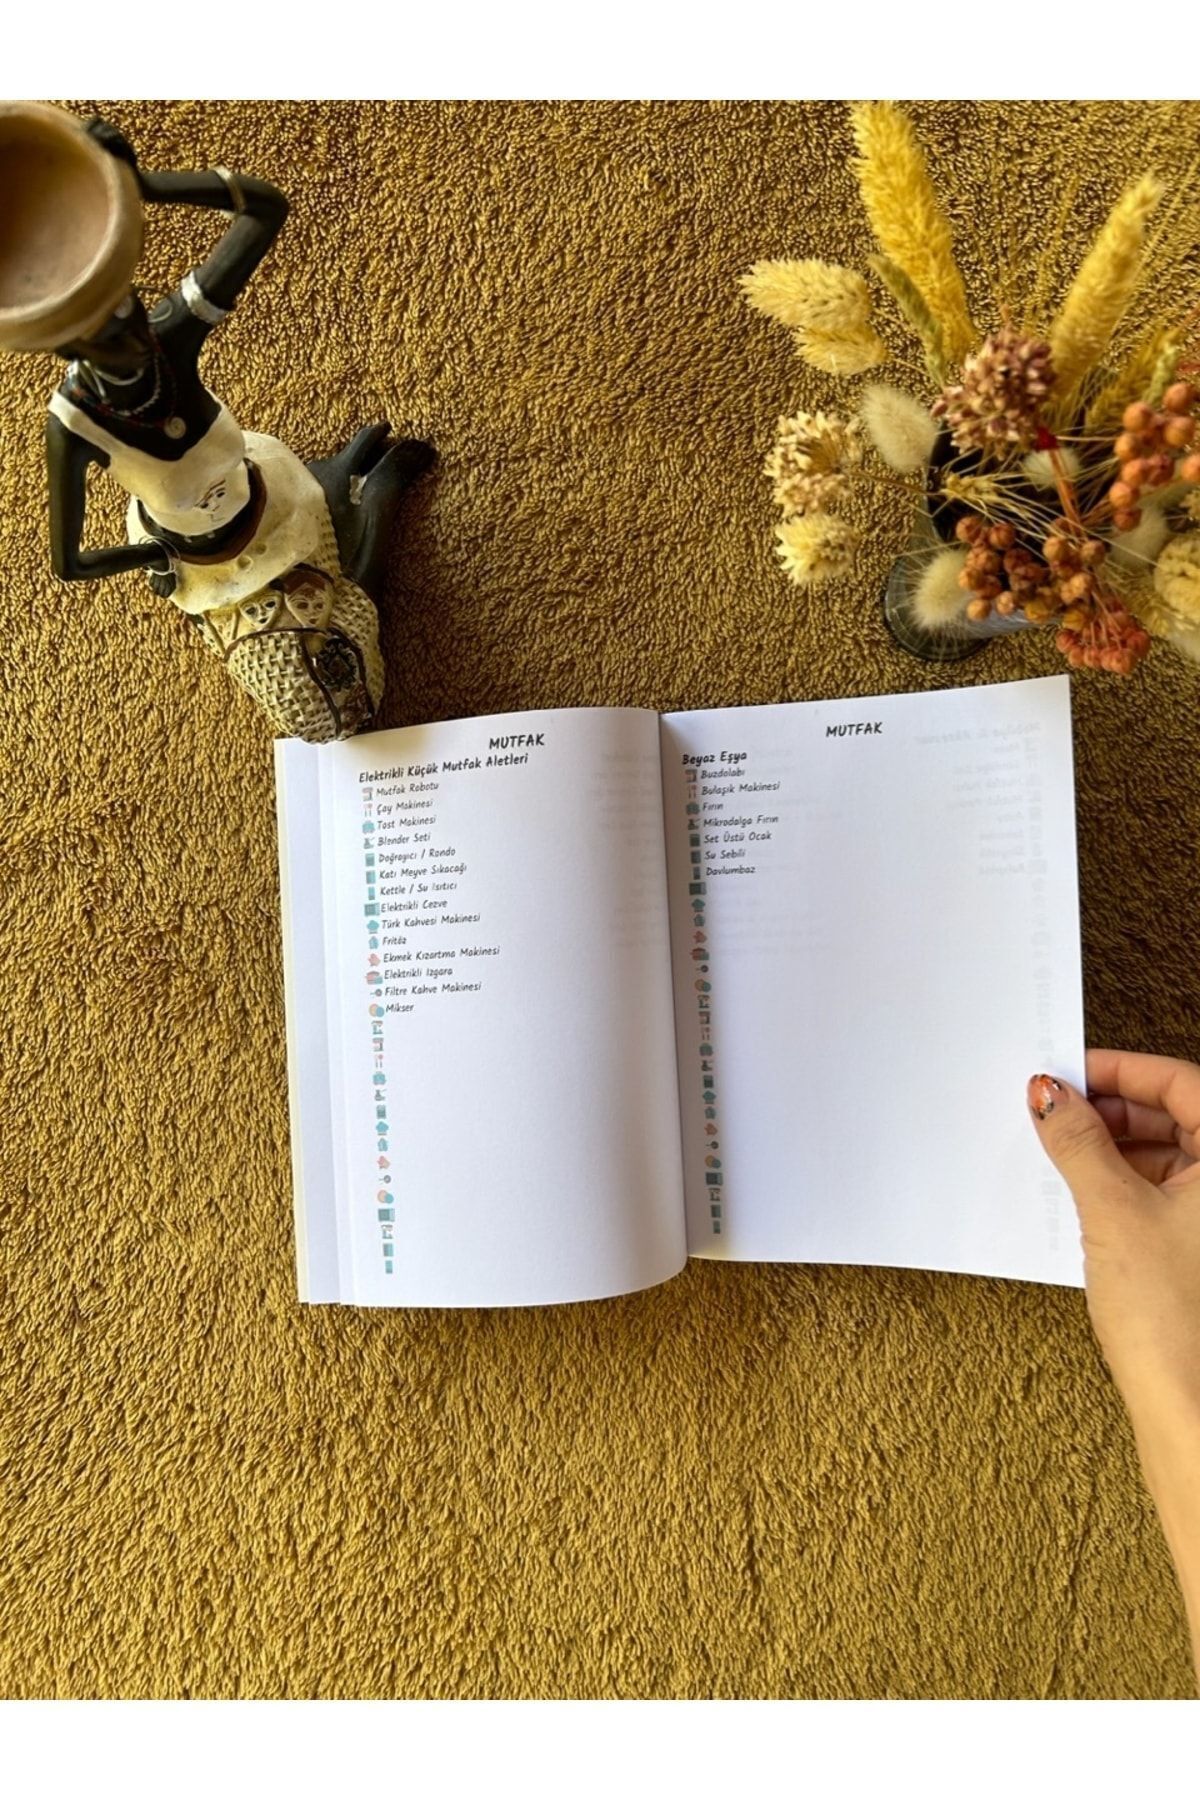 MUTFAK
Elektrikli Küçük Mutfak Aletleri
Mutfak Robotu
Çay Makinesi
Tost Makinesi
Blender Seti
Doğrayıcı / Rondo
Katı Meyve Sıkacağı
Kettle / Su Isıtıcı
Elektrikli Cezve
Türk Kahvesi Makinesi
Fritöz
Ekmek Kızartma Makinesi
Elektrikli Izgara
Filtre Kahve Makinesi
Mikser
MUTFAK
Beyaz Eşya
Buzdolabı
Bulaşık Makinesi
Fırın
Mikrodalga Fırın
Set Üstü Ocak
Su Sebili
Davlumbaz